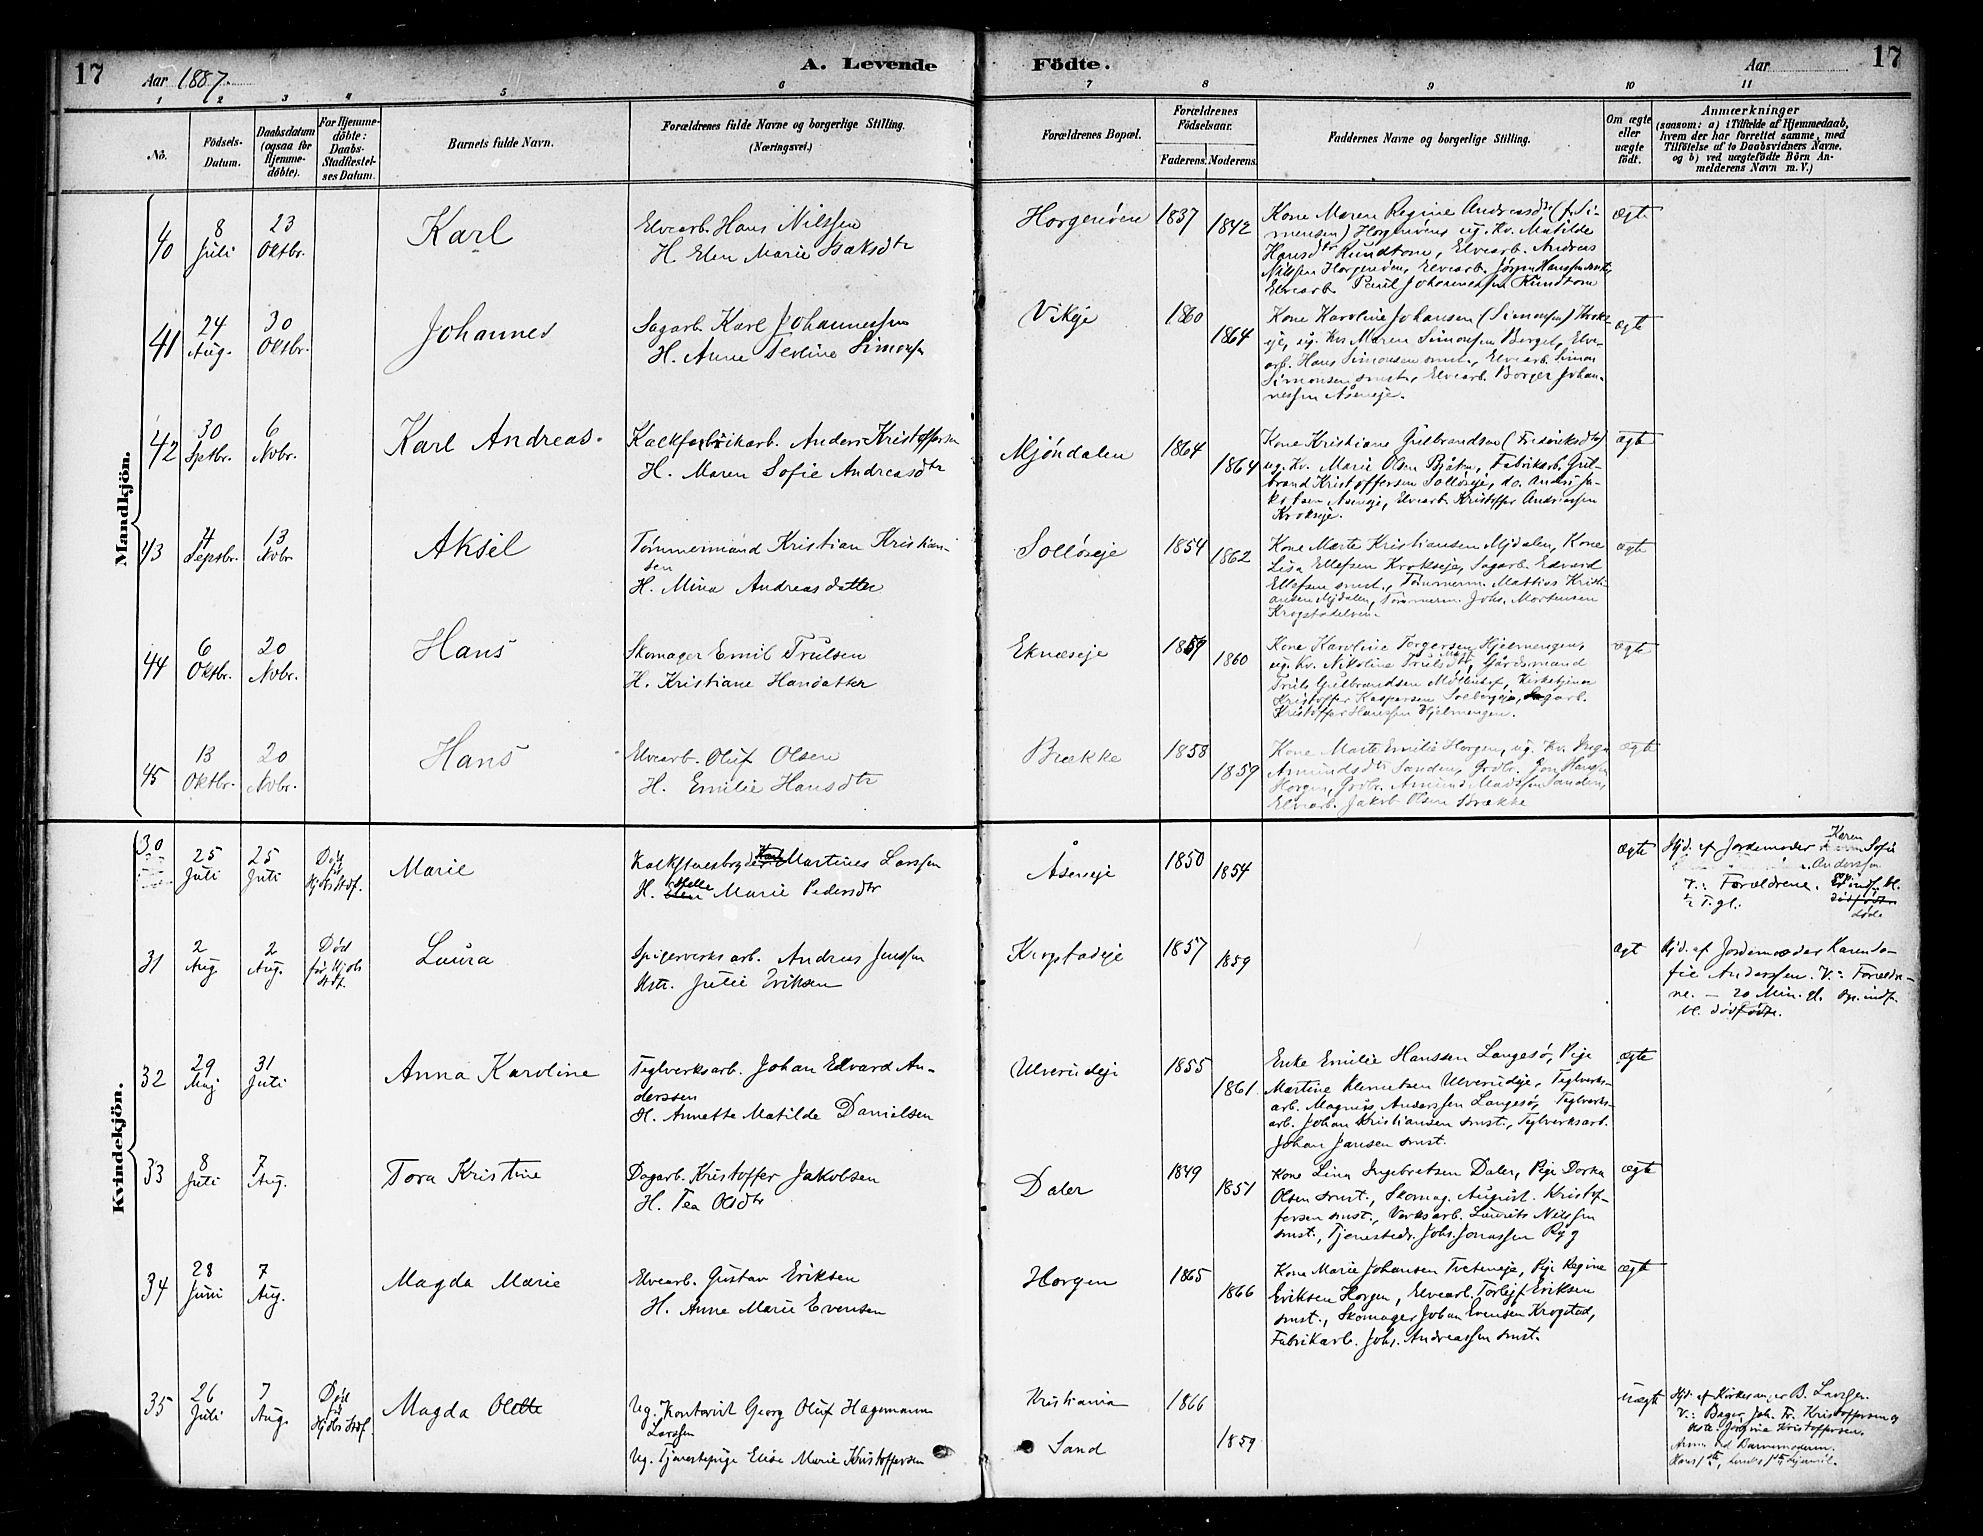 17
Aar 1887.
A. Levende
Födte.
Aar
17
1 2 3 4 5 6 7 8 9 10 11
No.
Födsels-Datum.
Daabsdatum (ogsaa for Hjemme-döbte).
For Hjemme-döbte: Daabs-Stadfæstel-ses Datum.
Barnets fulde Navn.
Forældrenes fulde Navne og borgerlige Stilling.
(Næringsvei.)
Forældrenes Bopæl.
Forældrenes Födselsaar.
Faderens. Moderens.
Faddernes Navne og borgerlige Stilling.
Om ægte eller uægte födt.
Anmærkninger
(saasom: a) i Tilfælde af Hjemmedaab, hvem der har forrettet samme, med Tilföielse af to Daabsvidners Navne, og b) ved uægtefödte Börn An-melderens Navn m. V.)
Mandkjön.
40 8 Juli 23 Oktbr. Karl
Elvearb. Hans Nilssen
H. Elen Marie Isaksdtr
Horgenöven 1837 1842
Kone Maren Regine Andreasdtr (f. Si-
mensen) Horgenöven, ug. Kv. Matilde
Hansdtr Rundtom, Elvearb. Andreas
Nilssen Horgenöven, Elvearb. Jörgen Hanssen smst.,
Elvearb. Paul Johannessen Rundtom
ægte
41 24 Aug. 30 Oktbr. Johannes
Sagarb. Karl Johannessen
H. Anne Terline Simonsen
Vikeje 1860 1864
Kone Karoline Johansen (Simonsen) Krok-
eje, ug. Kv. Maren Simonsen Berget, Elve-
arb. Hans Simonsen smst., Elvearb. Simon
Simonsen smst., Elvearb. Borger Johan-
nessen Åseneje.
ægte
42 30 Sptbr. 6 Nvbr. Karl Andreas.
Kalkfabrikarb. Anders Kristoffersen
H. Maren Sofie Andreasdtr
Mjöndalen 1864 1864
Kone Kristiane Gulbrandsen (Frederiksdtr)
ug. Kv. Marie Olsen Bjåtm, Fabrikarb. Gul-
brand Kristoffersen Sollöseje, do. Anders Ja-
kobsen Åseneje, Elvearb. Kristoffer Andreassen
Krokseje.
ægte
43 4 Septbr. 13 Nvbr. Aksel
Tömmermand Kristian Kristian-
sen
H. Mina Andreasdatter
Sollöseje 1854 1862
Kone Marte Kristiansen Mjdalen, Kone
Lisa Ellefsen Krokseje, Sagarb. Edvard
Ellefsen smst., Tömmerm. Mattias Kristi-
ansen Mjdalen, Tömmerm. Johs. Mortensen
Krogstadelven.
ægte
44 6 Oktbr. 20 Nvbr. Hans
Skomager Emil Trulsen
H. Kristiane Hansdatter
Eknæseje 1859 1860
Kone Karoline Torgersen Hjelmengen,
ug. Kv. Nikoline Trulsdtr, Gårdsmand
Truls Gulbrandsen Möllenhof, Kirketjener
Kristoffer Kaspersen Solbergeje, Sagarb.
Kristoffer Hanssen Hjelmengen.
ægte
45 13 Oktbr. 20 Nvbr. Hans
Elvearb. Oluf Olsen
H. Emilie Hansdtr
Brække 1858 1859
Kone Marte Emilie Horgen, ug. Kv. Inga
Amundsdtr Sanden, Grdbr. Jon Hanssen
Horgen, Grdbr. Amund Madssen Sanden,
Elvearb. Jakob Olsen Brække
ægte
Kvindekjön.
30 25 Juli 25 Juli Död för Hjdbs Stdf. Marie
Kalkstensbryder Martines Larssen
H. Helle Marie Pedersdtr
Åseneje 1850 1854
ægte
Hjd. af Jordemoder Karen Sofie
Anderssen
V.: Forældrene. Op. indf. bl.
½ T. gl. dödfödte
döde
31 2 Aug. 2 Aug. Död för Hjdbs stdf. Laura
Spigerverksarb. Andreas Jenssen
Hstr. Julie Eriksen
Krogstadeje 1857 1859
ægt
Hjd. af Jordemoder Karen So-
fie Anderssen. V.: Forældre-
ne. – 20 Min. gl. Op. indf.
bl. dödfödte.
32 29 Maj 31 Juli Anna Karoline
Teglverksarb. Johan Edvard An-
derssen
H. Annette Matilde Danielsen
Ulverudeje 1855 1861
Enke Emilie Hanssen Langesö, Pige
Martine Klemetsen Ulverudeje, Teglverks-
arb. Magnus Anderssen Langesö, Teglverks-
arb. Johan Kristiansen smst., Teglverksarb.
Johan Jansen smst.
ægte
33 8 Juli 7 Aug. Tora Kristine
Dagarb. Kristoffer Jakobsen
H. Tea Olsdtr
Daler 1849 1851
Kone Lina Ingebretsen Daler, Pige Dorka
Olsen smst., Skomag. August Kristof-
fersen smst., Verksarb. Laurits Nilssen
smst., Tjenestedr. Johs. Jonassen Ryg
ægte
34 28 Juni 7 Aug. Magda Marie
Elvearb. Gustav Eriksen
H. Anne Marie Evensen
Horgen 1865 1866
Kone Marie Johansen Tveteneje, Pige Regine
Eriksen Horgen, Elvearb. Torleif Eriksen
smst., Skomager Johan Evensen Krogstad,
Fabrikarb. Johs. Andreassen smst.
ægte
35 26 Juli 7 Aug. Död för Hjdbs Stdf. Magda Olette
Ug. Kontorist Georg Oluf Hagemann
Larssen
Ug. Tjenestepige Elise Marie Kristoffersen
Kristiania 1866
Sand 1859
uægt
Hjd. af Kirkesanger B. Laagen.
V.: Bager Joh. Fr. Kristoffersen og
Kone Jorgine Kristoffersen.
Anm. ved Barnemoderen.